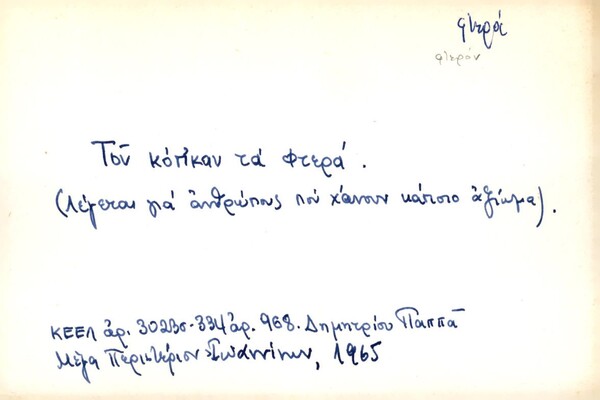 φτερό
φτερόν
Τοῦ κόπκαν τά φτερά.
(Λέγεται γιά ἀνθρώπους πού χάνουν κάποιο ἀξίωμα).
ΚΕΕΛ ἀρ. 3023σ. 334 ἀρ. 968. Δημητρίου Παππᾶ
Μέγα Περιστέριον Ἰωαννίνων, 1965